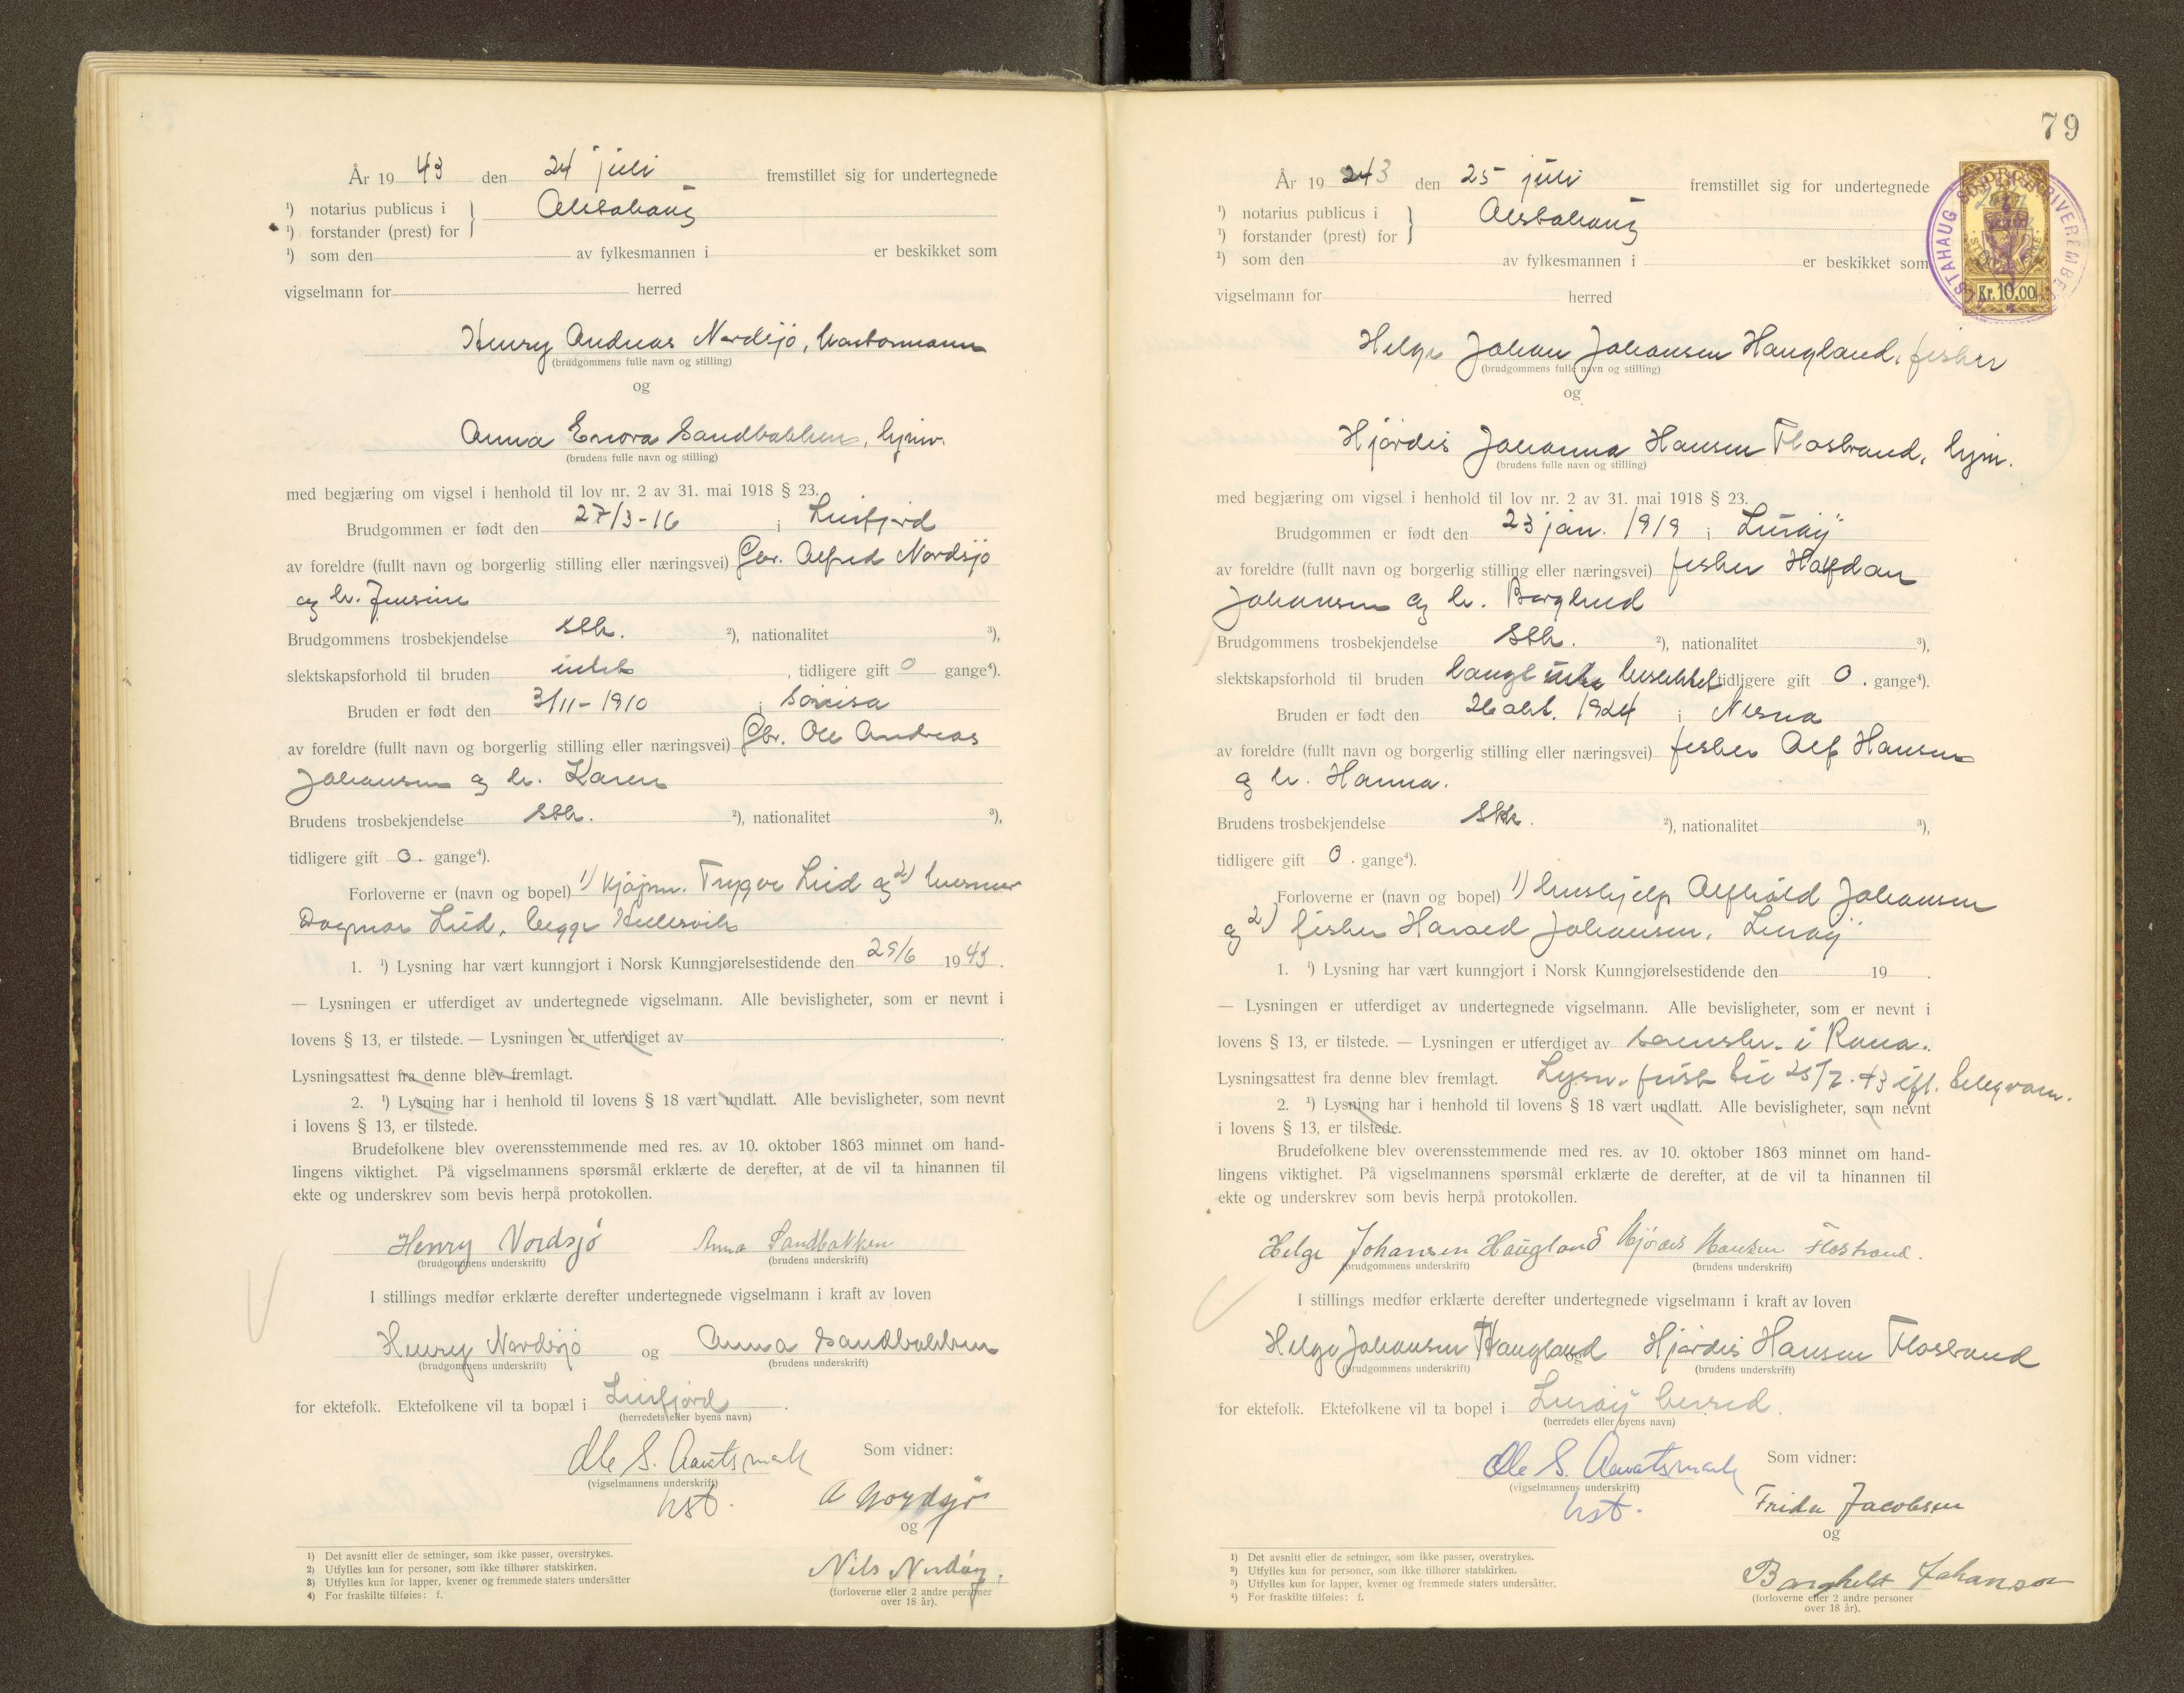 År 19 43 den 24 juli fremstillet sig for undertegnede
¹) notarius publicus i
¹) forstander (prest) for
Alstahaug
¹) som den av fylkesmannen i er beskikket som
vigselmann for herred
Henry Andreas Nordsjö, kontormann
(brudgommens fulle navn og stilling)
og
Anna Enora Sandbakken, hjmv.
(brudens fulle navn og stilling)
med begjæring om vigsel i henhold til lov nr. 2 av 31. mai 1918 § 23.
Brudgommen er født den 27/3-16 i Leirfjord
av foreldre (fullt navn og borgerlig stilling eller næringsvei) Gbr. Alfred Nordsjö
og h. Jensine
Brudgommens trosbekjendelse stk. ²), nationalitet ³),
slektskapsforhold til bruden intet , tidligere gift 0 gange⁴).
Bruden er født den 3/11-1910 i
av foreldre (fullt navn og borgerlig stilling eller næringsvei) Gbr. Ole Andreas
Johansen og h. Karen
Brudens trosbekjendelse stk. ²), nationalitet ³),
tidligere gift 0. gange⁴).
Forloverne er (navn og bopel) 1) Trygve Lied og 2) husmor
Dagmar Lied, begge
1. ¹) Lysning har vært kunngjort i Norsk Kunngjørelsestidende den 29/6 19 43.
— Lysningen er utferdiget av undertegnede vigselmann. Alle bevisligheter, som er nevnt i
lovens § 13, er tilstede. — Lysningen er utferdiget av .
Lysningsattest fra denne blev fremlagt.
2. ¹) Lysning har i henhold til lovens § 18 vært undlatt. Alle bevisligheter, som nevnt
i lovens § 13, er tilstede.
Brudefolkene blev overensstemmende med res. av 10. oktober 1863 minnet om hand-
lingens viktighet. På vigselmannens spørsmål erklærte de derefter, at de vil ta hinannen til
ekte og underskrev som bevis herpå protokollen.
Henry Nordsjö Anna Sandbakken
(brudgommens underskrift) (brudens underskrift)
I stillings medfør erklærte derefter undertegnede vigselmann i kraft av loven
Henry Nordsjö og Anna Sandbakken
(brudgommens underskrift) (brudens underskrift)
for ektefolk. Ektefolkene vil ta bopæl i Leirfjord .
(herredets eller byens navn)
Ole S. Aavatsmark Som vidner:
(vigselmannens underskrift)
hst. A Nordsjö
og
Nils
(forloverne eller 2 andre personer
over 18 år).
1) Det avsnitt eller de setninger, som ikke passer, overstrykes.
2) Utfylles kun for personer, som ikke tilhører statskirken.
3) Utfylles kun for lapper, kvener og fremmede staters undersåtter
4) For fraskilte tilføies: f.
79
År 19 43 den 25 juli fremstillet sig for undertegnede
¹) notarius publicus i
¹) forstander (prest) for
Alstahaug
¹) som den av fylkesmannen i er beskikket som
vigselmann for herred
STAHAUG SORENSKRIVEREMBE
Kr. 10.00
Helge Johan Johansen Haugland, fisker
(brudgommens fulle navn og stilling)
og
Hjördis Johanna Hansen Flostrand, hjm.
(brudens fulle navn og stilling)
med begjæring om vigsel i henhold til lov nr. 2 av 31. mai 1918 § 23.
Brudgommen er født den 23 jan. 1919 i Luröy
av foreldre (fullt navn og borgerlig stilling eller næringsvei) fisker Halfdan
Johansen og h. Borghild
Brudgommens trosbekjendelse stk. ²), nationalitet ³),
slektskapsforhold til bruden langt ute beslektet tidligere gift 0. gange⁴).
Bruden er født den 26 okt. 1924 i Nesna
av foreldre (fullt navn og borgerlig stilling eller næringsvei) fisker Alf Hansen
og h. Hanna.
Brudens trosbekjendelse Stk. ²), nationalitet ³),
tidligere gift 0. gange⁴).
Forloverne er (navn og bopel) 1) hushjelp Alfhild Johansen
og 2) fisker Harald Johansen, Luröy
1. ¹) Lysning har vært kunngjort i Norsk Kunngjørelsestidende den 19 .
— Lysningen er utferdiget av undertegnede vigselmann. Alle bevisligheter, som er nevnt i
lovens § 13, er tilstede. — Lysningen er utferdiget av sorenskr. i Rana.
Lysningsattest fra denne blev fremlagt. Lysn. frist til 25/7-43 ifl. telegram.
2. ¹) Lysning har i henhold til lovens § 18 vært undlatt. Alle bevisligheter, som nevnt
i lovens § 13, er tilstede.
Brudefolkene blev overensstemmende med res. av 10. oktober 1863 minnet om hand-
lingens viktighet. På vigselmannens spørsmål erklærte de derefter, at de vil ta hinannen til
ekte og underskrev som bevis herpå protokollen.
Helge Johansen Haugland Hjördis Hansen Flostrand.
(brudgommens underskrift) (brudens underskrift)
I stillings medfør erklærte derefter undertegnede vigselmann i kraft av loven
Helge Johansen Haugland og Hjördis Hansen Flostrand
(brudgommens underskrift) (brudens underskrift)
for ektefolk. Ektefolkene vil ta bopel i Luröy herred.
(herredets eller byens navn)
Ole S. Aavatsmark Som vidner:
(vigselmannens underskrift)
hst. Frida Jacobsen
og
Borghild Johansen
(forloverne eller 2 andre personer
over 18 år).
¹) Det avsnitt eller de setninger, som ikke passer, overstrykes.
²) Utfylles kun for personer, som ikke tilhører statskirken.
³) Utfylles kun for lapper, kvener og fremmede staters undersåtter.
⁴) For fraskilte tilføies: f.